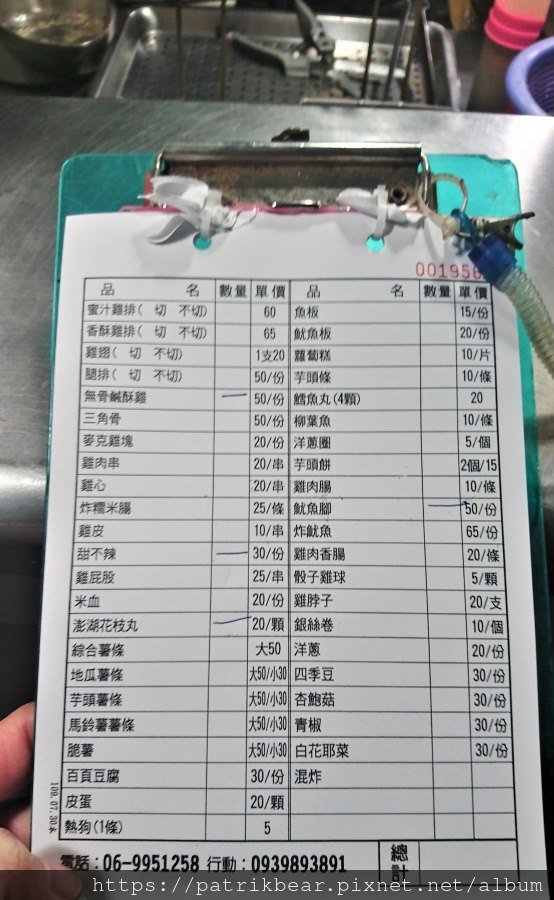 001956
品 名 數量 單價 品 名 數量 單價
蜜汁雞排( 切 不切) 60 魚板 15/份
香酥雞排( 切 不切) 65 魷魚板 20/份
雞翅( 切 不切) 1支20 蘿蔔糕 10/片
腿排( 切 不切) 50/份 芋頭條 10/條
無骨鹹酥雞 一 50/份 鱈魚丸(4顆) 20
三角骨 50/份 柳葉魚 10/條
麥克雞塊 20/份 洋蔥圈 5/個
雞肉串 20/串 芋頭餅 2個/15
雞心 20/串 雞肉腸 10/條
炸糯米腸 25/條 魷魚腳 一 50/份
雞皮 10/串 炸魷魚 65/份
甜不辣 一 30/份 雞肉香腸 20/條
雞屁股 25/串 骰子雞球 5/顆
米血 20/份 雞脖子 20/支
澎湖花枝丸 一 20/顆 銀絲卷 10/個
綜合薯條 大50 洋蔥 20/份
地瓜薯條 大50/小30 四季豆 30/份
芋頭薯條 大50/小30 杏鮑菇 30/份
馬鈴薯薯條 大50/小30 青椒 30/份
脆薯 大50/小30 白花耶菜 30/份
百頁豆腐 30/份 混炸
皮蛋 20/顆
熱狗(1條) 5
109.07.30本
電話：06-9951258 行動：0939893891 總計
https://patrikbear.pixnet.net/album